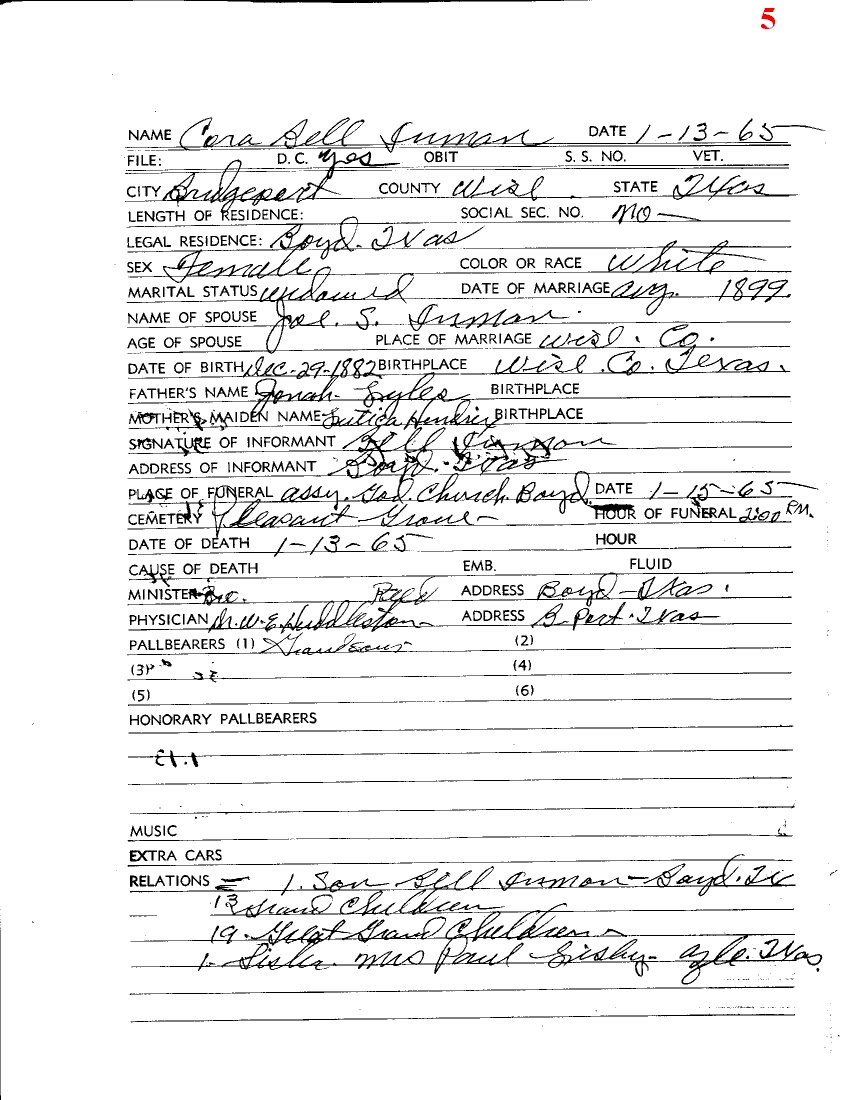 5
NAME Cora Bell Inman DATE 1-13-65
FILE: D.C. yes OBIT S. S. NO. VET.
CITY Bridgeport COUNTY Wise STATE Texas
LENGTH OF RESIDENCE: SOCIAL SEC. NO. no
LEGAL RESIDENCE: Boyd. Texas
SEX Female COLOR OR RACE White
MARITAL STATUS widowed DATE OF MARRIAGE Aug. 1899.
NAME OF SPOUSE Joe. S. Inman.
AGE OF SPOUSE PLACE OF MARRIAGE Wise. Co.
DATE OF BIRTH Dec-29-1882 BIRTHPLACE Wise. Co. Texas.
FATHER'S NAME Jonah Lyles BIRTHPLACE
MOTHER'S MAIDEN NAME Hendrix BIRTHPLACE
SIGNATURE OF INFORMANT Inmon
ADDRESS OF INFORMANT Boyd. Texas
PLACE OF FUNERAL Assy. God. Church. Boyd. DATE 1-15-65
CEMETERY Pleasant Grove - HOUR OF FUNERAL 2:00 P.M.
DATE OF DEATH 1-13-65 HOUR
CAUSE OF DEATH EMB. FLUID
MINISTER Bro. ADDRESS Boyd-Texas.
PHYSICIAN Dr. W. E. Huddleston ADDRESS B. Port. Texas
PALLBEARERS (1) Grandsons (2)
(3) (4)
(5) (6)
HONORARY PALLBEARERS
MUSIC
EXTRA CARS
RELATIONS = 1. Son Inmon - Boyd. Tx
13 Grand Children
19. Great Grand Children
1. Sister. Mrs Paul - Azle. Texas.